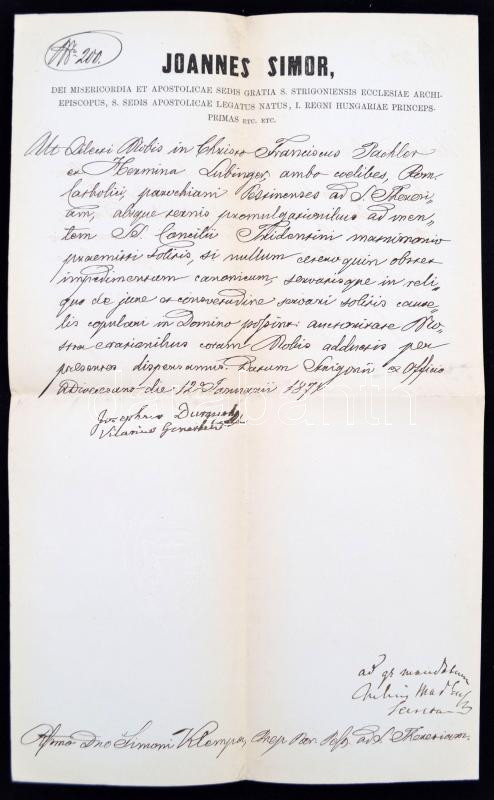 Nr. 200.
JOANNES SIMOR,
DEI MISERICORDIA ET APOSTOLICAE SEDIS GRATIA S. STRIGONIENSIS ECCLESIAE ARCHI-
EPISCOPUS, S. SEDIS APOSTOLICAE LEGATUS NATUS, I. REGNI HUNGARIAE PRINCEPS-
PRIMAS ETC. ETC.
Ut Dilecti Nobis in Christo Franciscus Pachler
et Hermina Lubinger, ambo coelibes, Rom.
Catholici, parochiani Pestinenses ad S. Theresi-
am, absque ternis promulgationibus ad men-
tem SS. Concilii Tridentini matrimonio
praemitti solitis, si nullum ceteroquin obstet
impedimentum canonicum, servatisque in reli-
quo de jure et consvetudine servari solitis caute-
lis copulari in Domino possint: auctoritate No-
stra e rationibus coram Nobis adductis per
praesentes dispensamus. Datum Strigonii ex Officio
Dioecesano die 12 Januarii 1871
Josephus
Vicarius Generalis
ad gr mandatum
Julius
Simoni Klempa, Par. Pest. ad S. Theresiam.